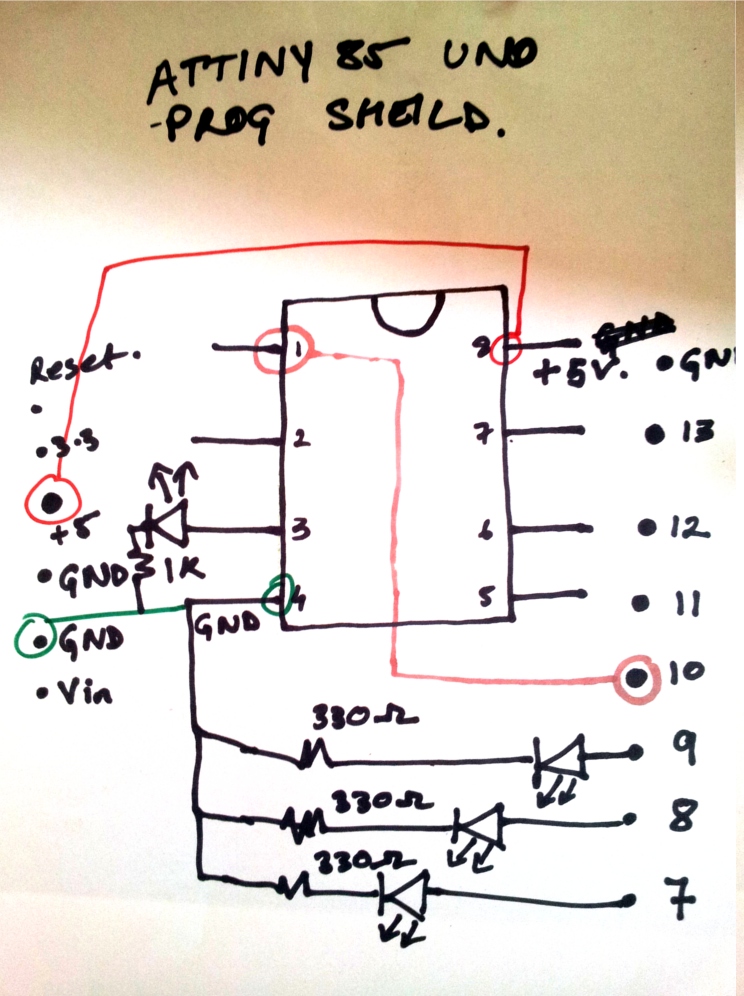 ATTINY 85 UNO
-PROG SHEILD.
Reset.
1
8
+5V.
GN
3.3
2
7
13
+5
3
6
12
GND
1K
4
5
11
GND
GND
10
Vin
330Ω
9
330Ω
8
330Ω
7